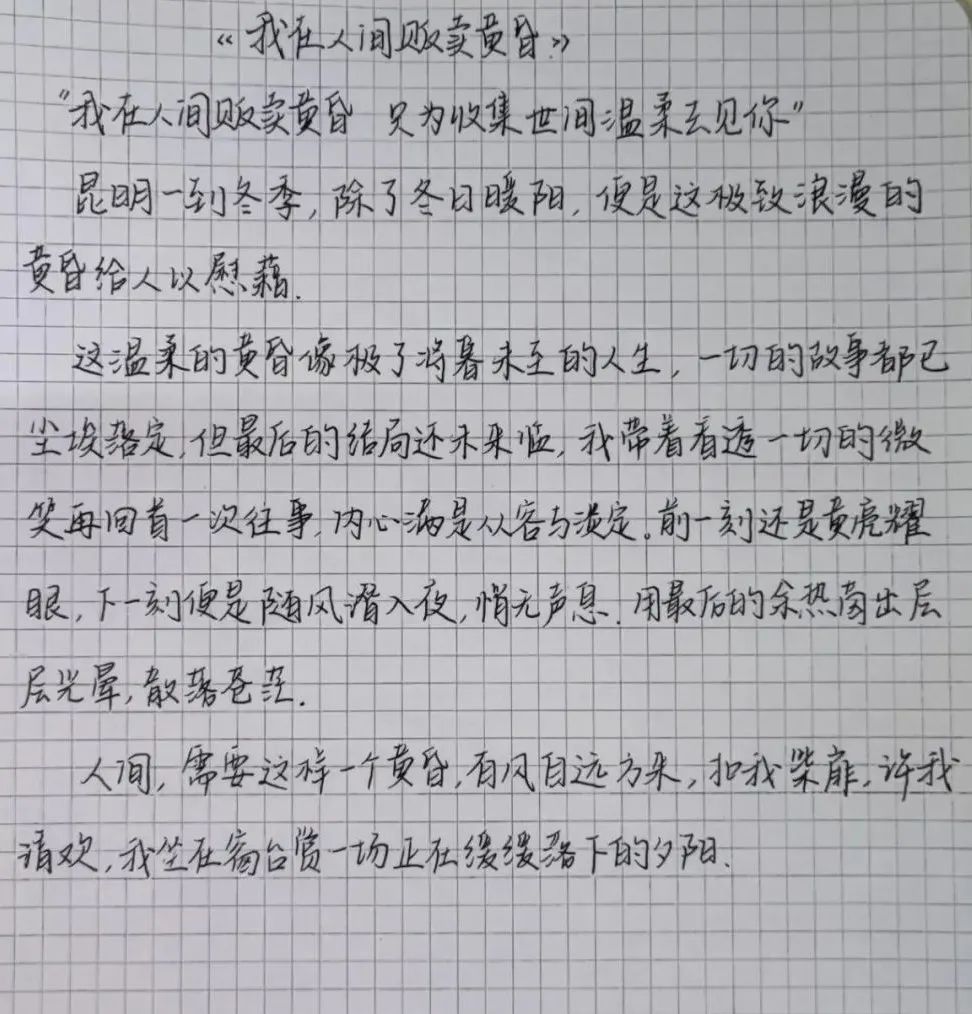 《我在人间贩卖黄昏》
"我在人间贩卖黄昏 只为收集世间温柔去见你"
昆明一到冬季,除了冬日暖阳,便是这极致浪漫的
黄昏给人以慰藉.
这温柔的黄昏像极了将暮未至的人生,一切的故事都已
尘埃落定,但最后的结局还未来临,我带着看透一切的微
笑再回首一次往事,内心满是从容与淡定。前一刻还是黄亮耀
眼,下一刻便是随风潜入夜,悄无声息.用最后的余热茵出层
层光晕,散落苍茫.
人间,需要这样一个黄昏,有风自远方来,扣我柴扉,许我
清欢,我坐在窗台赏一场正在缓缓落下的夕阳.